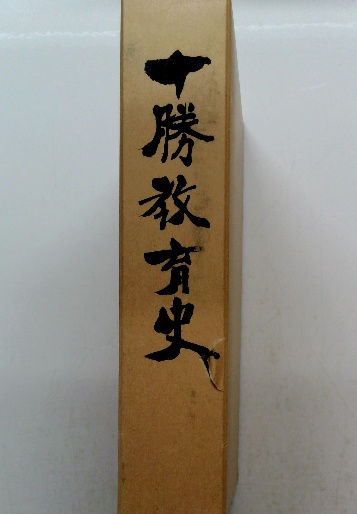 十勝教育史